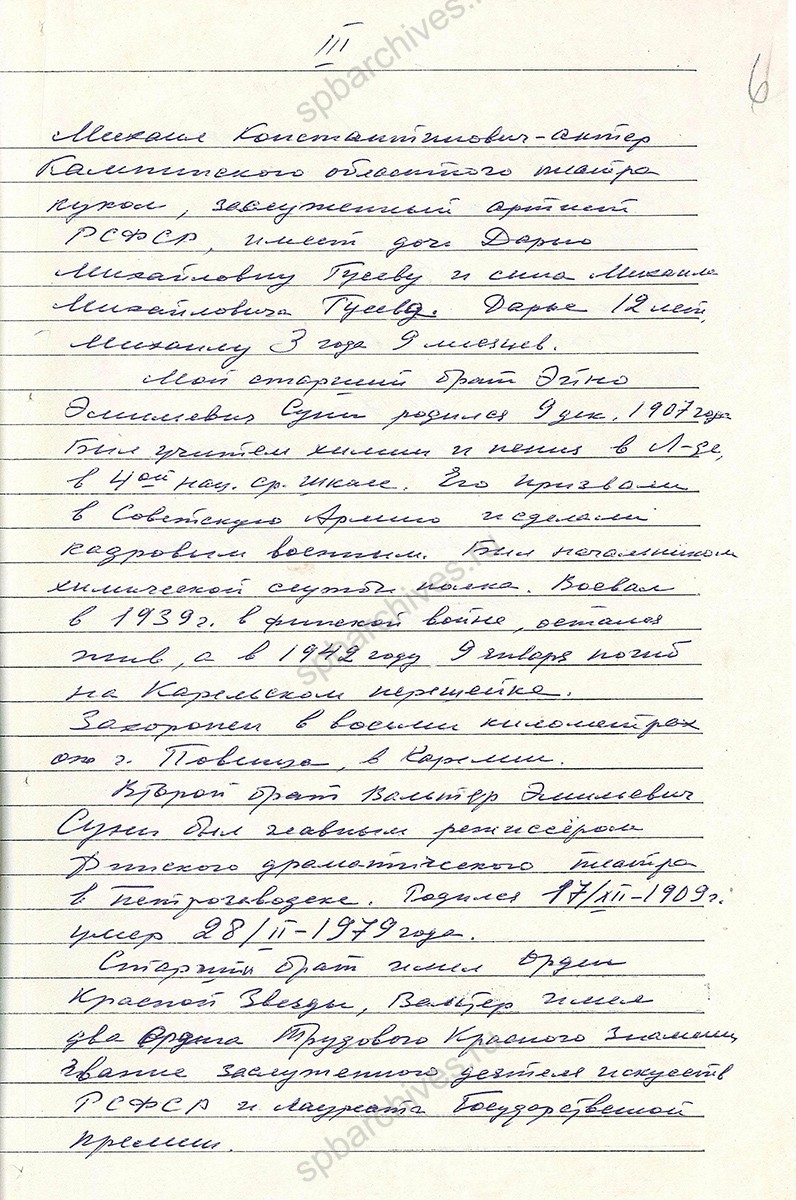 III
6
Михаил Константинович - актер
Калининского областного театра
кукол, заслуженный артист
РСФСР, имеет дочь Дарью
Михайловну Гусеву и сына Михаила
Михайловича Гусева. Дарье 12 лет,
Михаилу 3 года 9 месяцев.
Мой старший брат Эйно
Эмильевич Суни родился 9 дек. 1907 года
Был учителем химии и пения в Л-де,
в 4ой нац. ср. школе. Его призвали
в Советскую Армию и сделали
кадровым военным. Был начальником
химической службы полка. Воевал
в 1939г. в финской войне, остался
жив, а в 1942 году 9 января погиб
на Карельском перешейке.
Захоронен в восьми километрах
от г. Повенца, в Карелии.
Второй брат Вальтер Эмильевич
Суни был главным режиссёром
Финского драматического театра
в Петрозаводске. Родился 17/XII-1909г.
умер 28/II-1979 года.
Старший брат имел Орден
Красной Звезды, Вальтер имел
два Ордена Трудового Красного Знамени,
звание заслуженного деятеля искусств
РСФСР и лауреата Государственной
премии.
spbarchives.ru
spbarchives.ru
spbarchives.ru